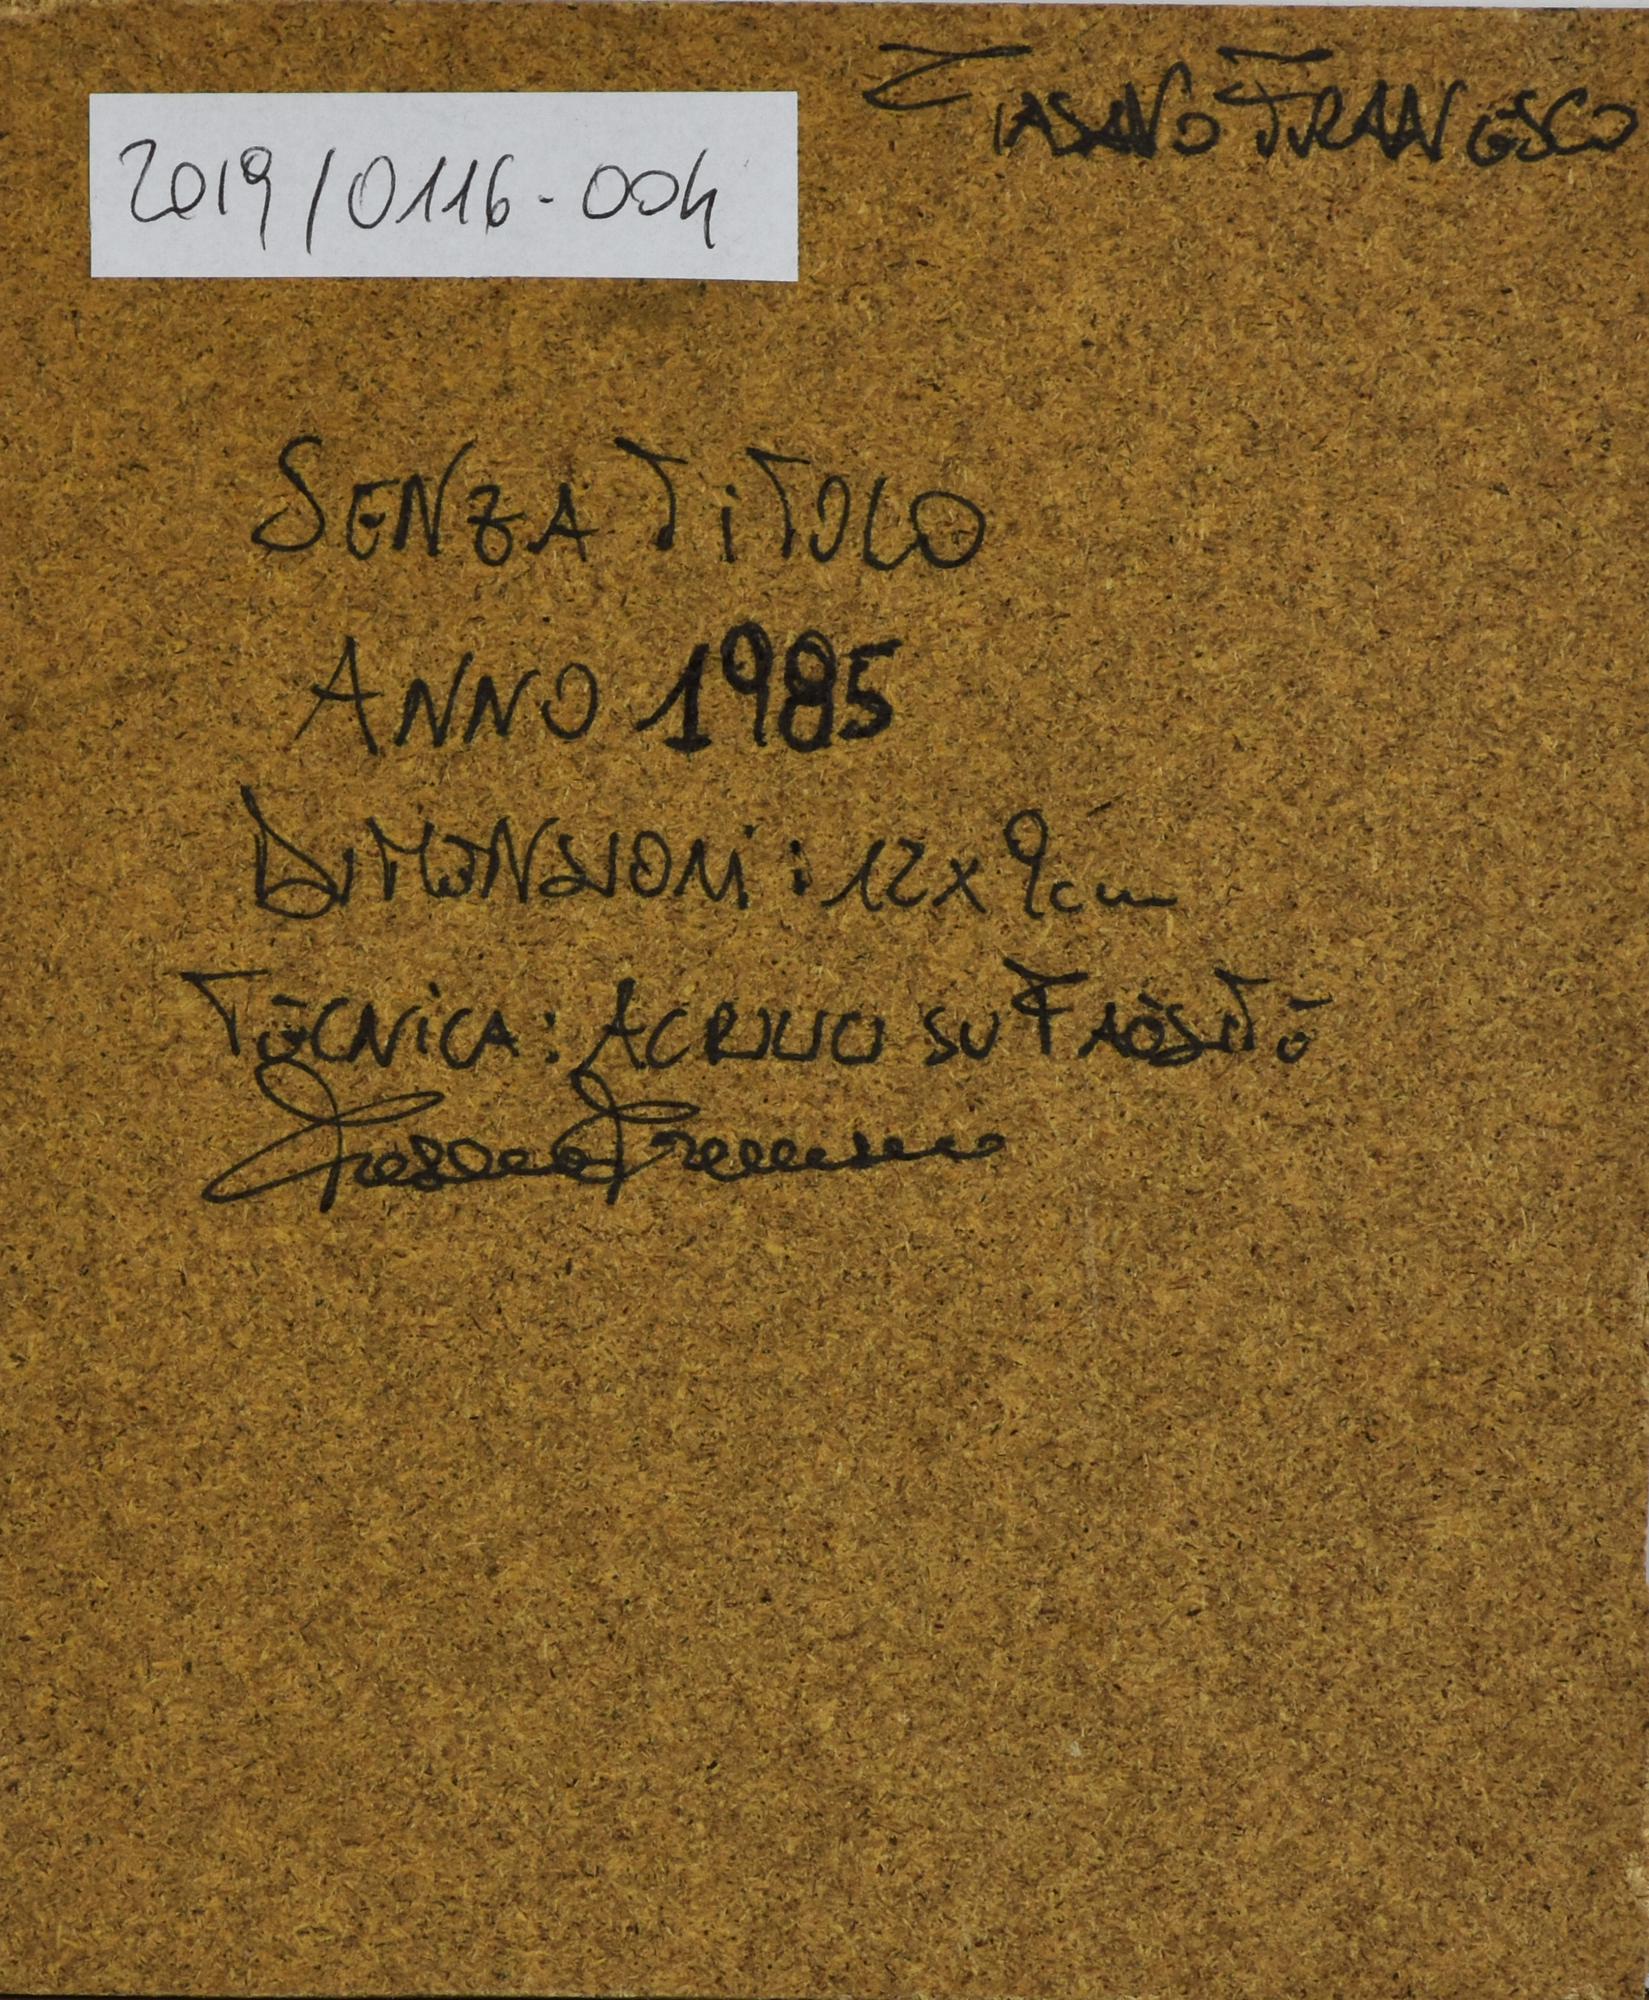 FASANO FRANCESCO
2019/0116-004
SENZA TITOLO
ANNO 1985
DIMENSIONI: 12x9cm
TECNICA: ACRILICO SU FAESITE
Fasano Francesco